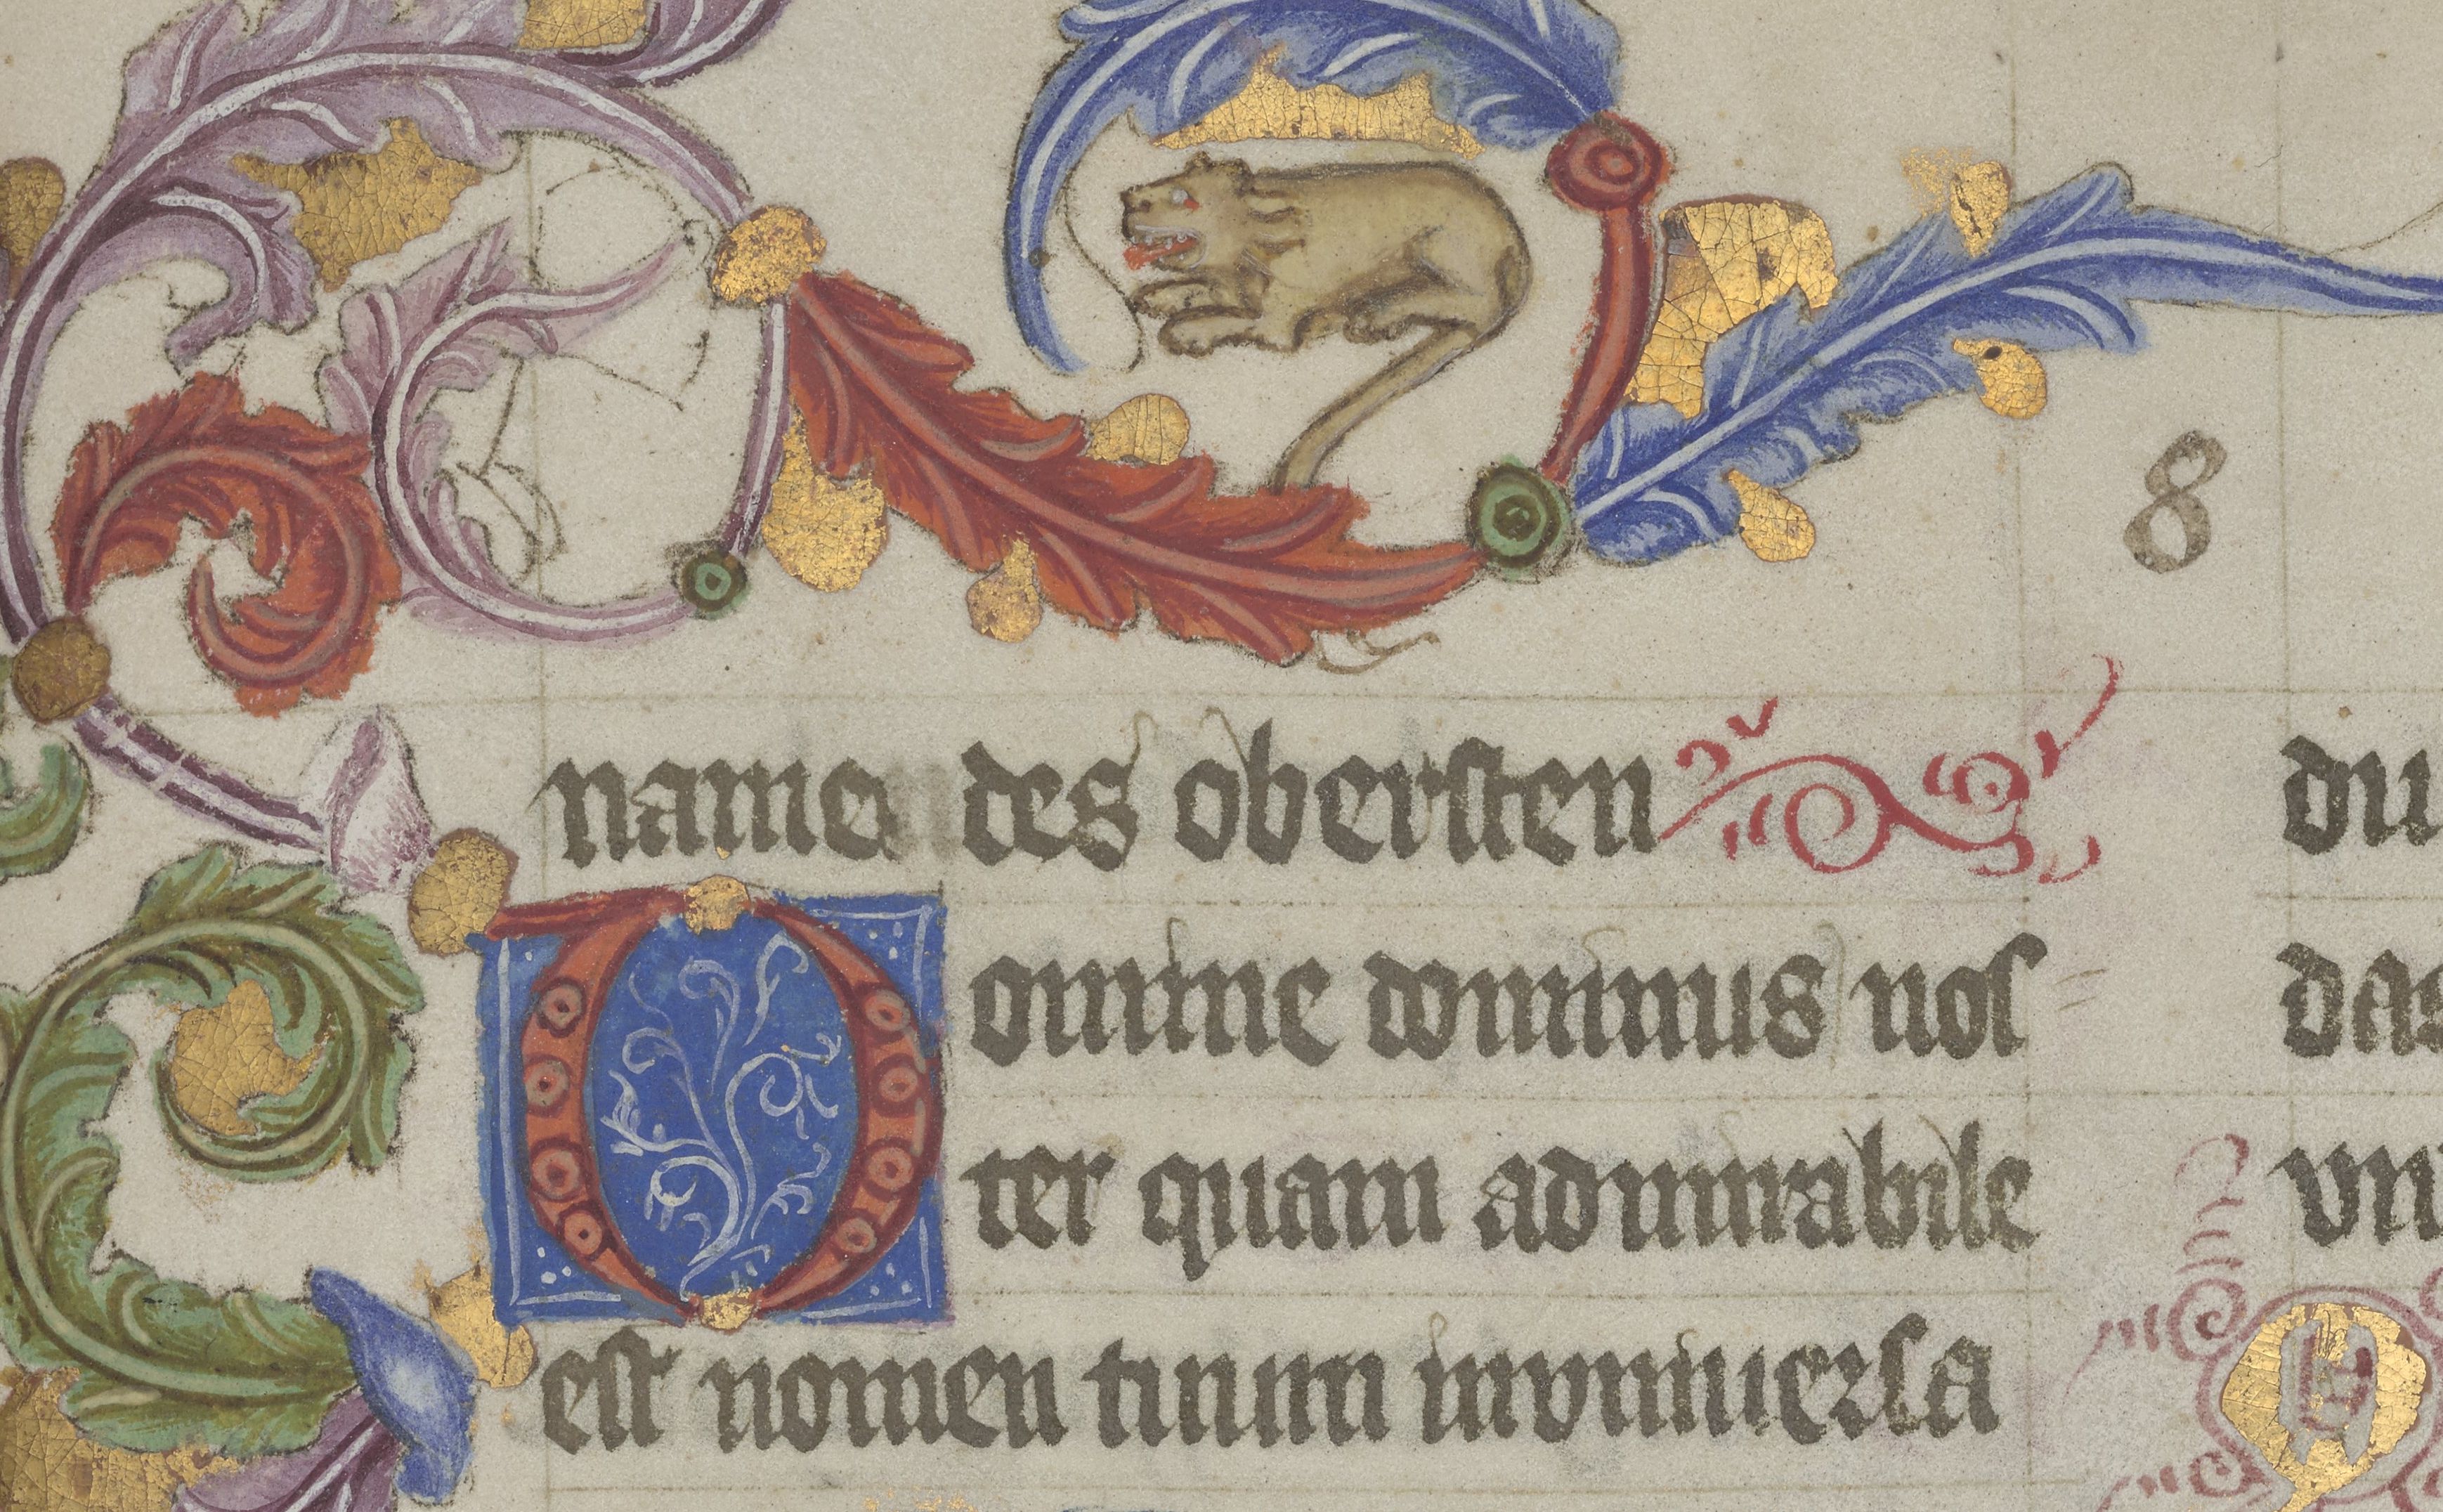 8
name des obersten
Domine dominus nos
ter quam admirabile
est nomen tuum invniuersa
du
das
vn